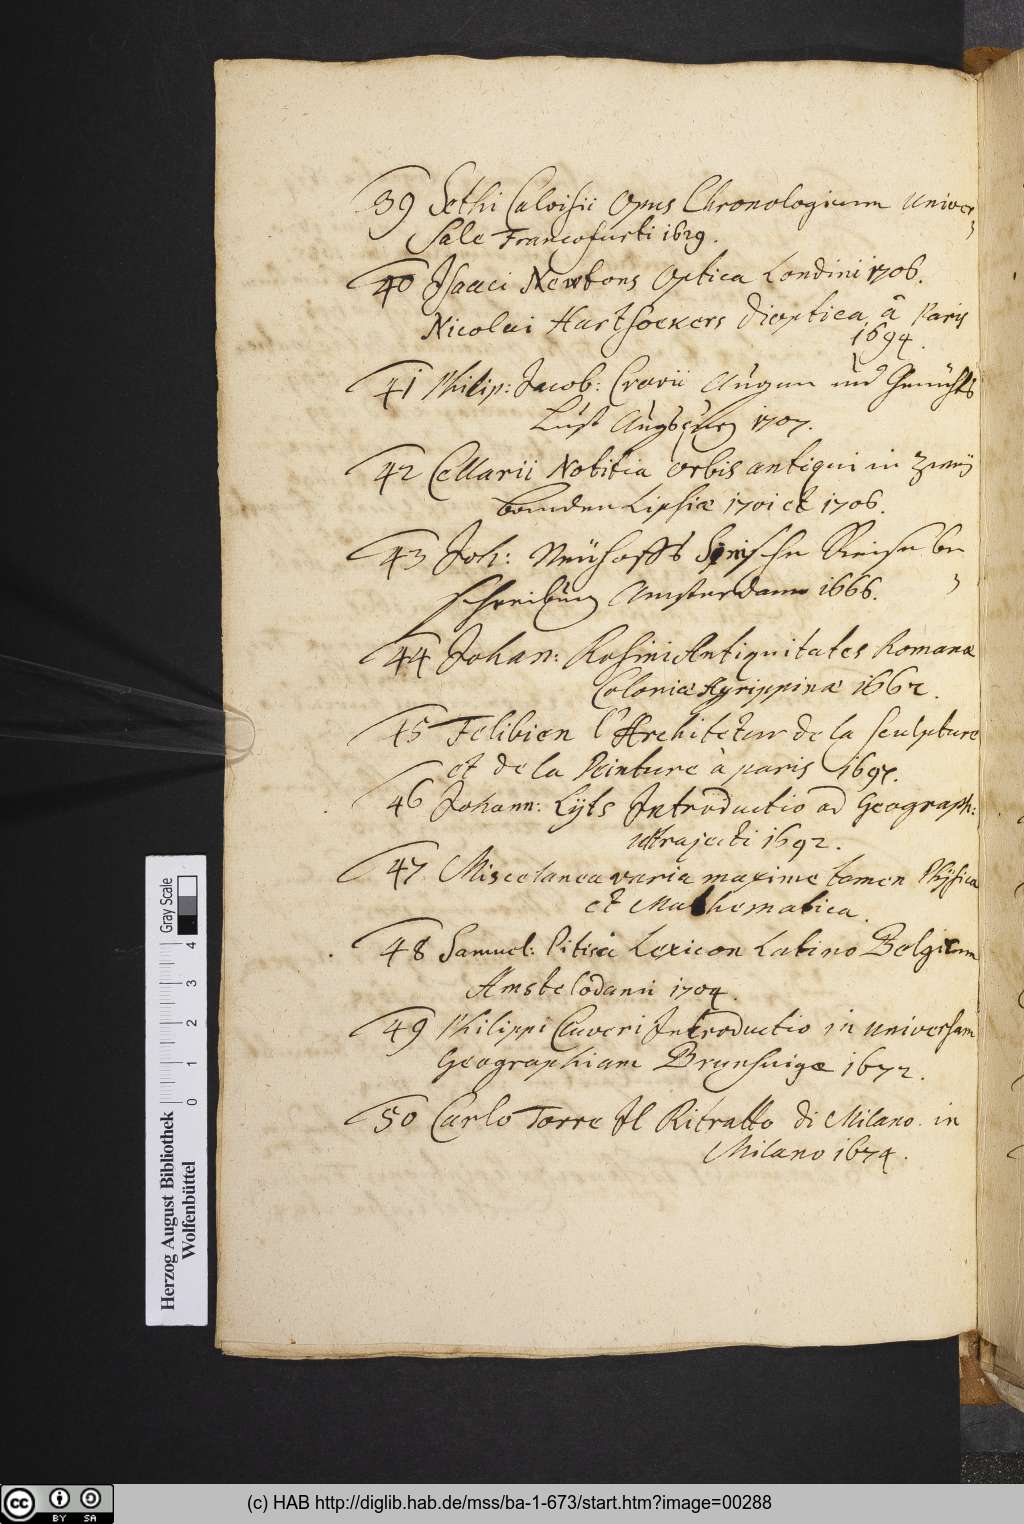 39 Sethi Calvisii Opus Chronologicum univer
sale Francofurti 1629.
40 Isaaci Newtons Optica Londini 1706.
Nicolai Hartsoekers dioptica â Paris
1694.
41 Philip: Jacob: Crovii Augen und Gemüths
Lust Augsburg 1707.
42 Cellarii Notitia orbis antiqui in zweÿ
bänden Lipsiæ 1701 et 1706.
43 Joh: Neuhoffs Sinische Reise be
schreibung Amsterdam 1666.
44 Johan: Rosini Antiquitates Romanæ
Coloniæ Agrippinæ 1662.
45 Felibien l'Architetur de la sculpture
et de la Peinture à paris 1697.
46 Johann: Lÿts Introductio ad Geograph:
ultrajecti 1692.
47 Miscelanea varia maxime tamen Phÿsica
et Mathematica.
48 Samuel: Pitisci Lexicon Latino Belgicum
Amstelodami 1704.
49 Philippi Cluveri Introductio in universam
Geographiam Brunsuigæ 1672.
50 Carlo Torre Il Ritratto di Milano. in
Milano 1674.
Herzog August Bibliothek
Wolfenbüttel
0 1 2 3 4
Gray Scale
cc BY SA
(c) HAB http://diglib.hab.de/mss/ba-1-673/start.htm?image=00288